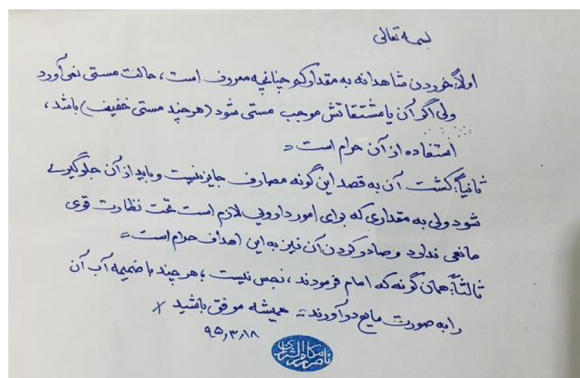 بسمه تعالی
اولاً: خوردن شاهدانه به مقدار کم چنانچه معروف است، حالت مستی نمی‌آورد
ولی اگر آن یا مشتقاتش موجب مستی شود (هر چند مستی خفیف) باشد،
استفاده از آن حرام است
ثانیاً: کشت آن به قصد این گونه مصارف جایز نیست و باید از آن جلوگیری
شود ولی به مقداری که برای امور دارویی لازم است تحت نظارت قوی
مانعی ندارد و صادر کردن آن نیز به این اهداف حرام است
ثالثاً: همان گونه که امام فرمودند، نجس نیست، هر چند با ضمیمه آب آن
را به صورت مایع درآورند همیشه موفق باشید
۹۵٫۳٫۱۸
ناصر مکارم الشیرازی